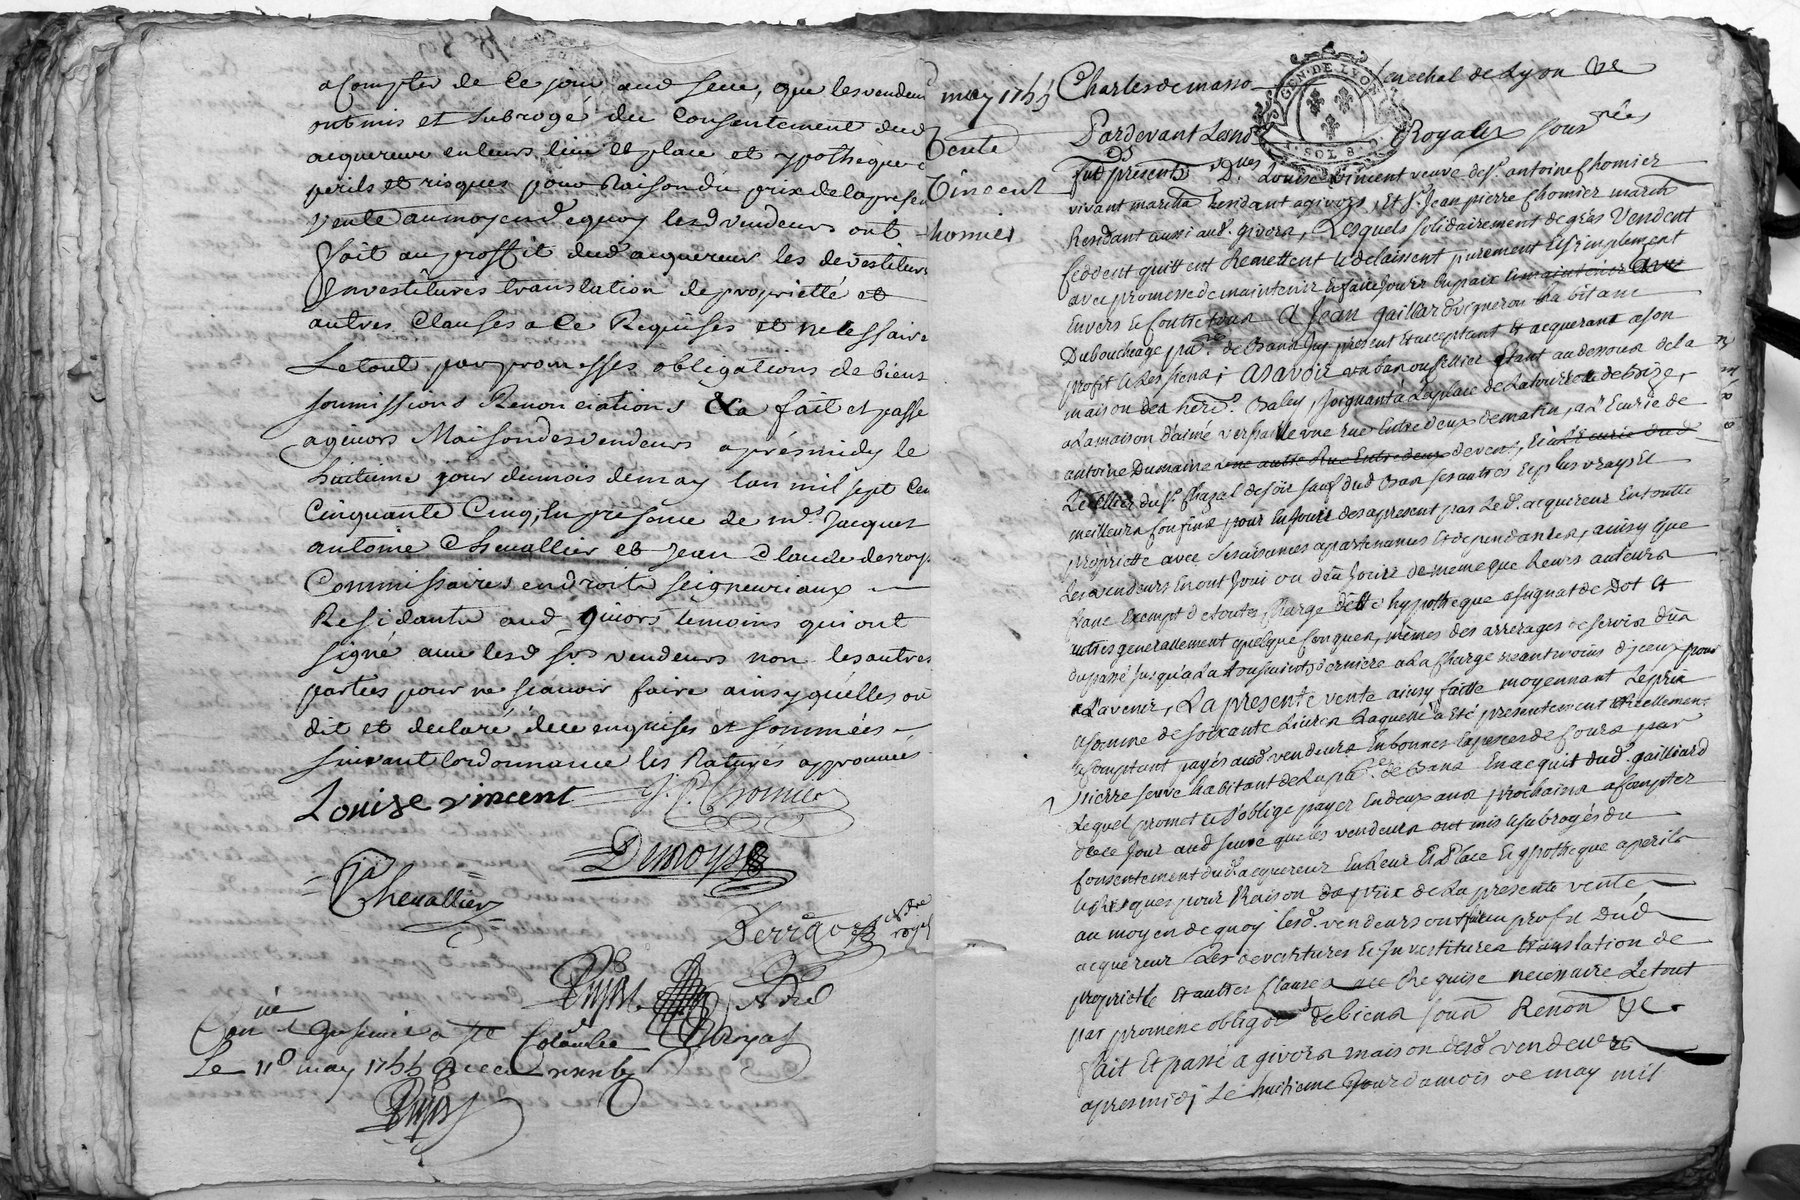 a Compter de Ce jour aud feue, que les vendeur
ont mis et subrogé du Consentement dud
acquereur en leurs lieu et place et ypothéque a
perils et risques pour Raison du prix de la presen
vente au moyen de quoy lesd vendeurs ont
fait au proffit dud acquereur les devestiture
Investitures translation de proprietté et
autres Clauses a Ce Requises et necessaire
Le tout par promesses obligations de biens
soumissions Renonciations &a fait et passé
a givors Maison des vendeurs aprésmidy le
huitieme jour du mois de may lan mil sept Cen
Cinquante Cinq, en presence de mrs Jacques
antoine Chevallier et Jean Claude desroy
Commissaires en droits seigneuriaux
Residants aud givors temoins qui ont
signé avec lesd srs vendeurs non les autres
parties pour ne scavoir faire ainsy qu'elles on
dit et declaré de ce enquises et sommées
suivant lordonnance les Raturés approuvés
Louise vincent J. P. Chomier
Desroys
Chevallier
nre royal
royal
Le 11e may 1755
may 1755
Vente
Vincent
homier
Charles de masso senechal de Lyon &c
GEN. DE LYON
SOL 8
Pardevant Les nres Royaux sousnés
fut presents Dlle Louise vincent veuve de sr antoine Chomier
vivant marchd Residant a givors, Et sr Jean pierre Chomier march
Residant aussi aud givors, Lesquels solidairement de grés Vendent
Ceddent quittent Remettent et delaissent purement et simplement
avec promesse de maintenir et faire Jouir En paix
Envers et Contre tous A Jean gaillard vigneron habitant
Du bouchage psse de present et acceptant et acquerant a son
profit et des siens; Asavoir un ban ou sellier etant au dessous de la
maison des herrs Joignant à La place de La tourrette de bize,
a la maison d'aimé verfaille une rue Entre deux de matin, a L'Ecurie de
antoine Dumaine une autre Rue Entre deux de vent, Et a L'Ecurie dud
Le Cellier du sr Chazal de soir sauf dud ses autres Et plus vrays Et
meilleurs Confins pour En Jouir des apresent par Led acquereur En toutte
proprietté avec ses aisances apartenances Et dependances, ainsy que
Les vendeurs En ont Joui ou dû Jouir de meme que Leurs auteurs
franc Exempt de toutes Charge dette hypotheque asignat de Dot Et
autres generallement quelque Conques, mêmes des arrerages de servis dûs
du passé jusqu'a La toussaints derniere a La Charge neantmoins d'iceux pour
a L'avenir, La presente vente ainsy faitte moyennant Le prix
et somme de soixante Livres Laquelle a eté presentement et Reellement
et Comptant payés aud vendeurs En bonnes Especes de Cours par
pierre seuve habitant de La psse de En acquit dud gailliard
Lequel promet et s'oblige payer En deux ans prochains a Compter
de ce Jour aud seuve que les vendeurs ont mis et subrogés du
Consentement dud acquereur En Leur Et Place Et ypotheque a perils
et Risques pour Raison du prix de La presente vente
au moyen de quoy lesd vendeurs ont fait au profit Dud
acquereur Les devestitures Et Investitures translation de
proprietté Et autres Clauses a Ce Requise necessaire Le tout
par promesse obligon de biens soumn Renon &c
Fait Et passé a givors maison desd vendeurs
apresmidi Le huitieme Jour du mois de may mil